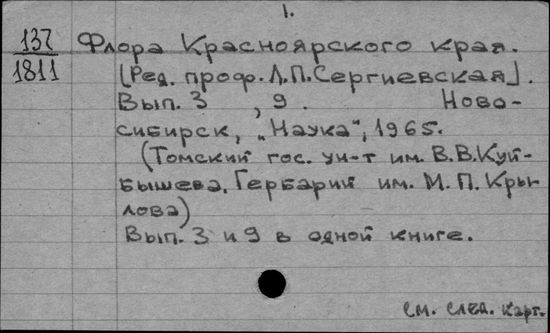 1.
137 Флора Красноярского края.
1811 [Ред. проф. Л.П.Сергиевская].
Вып. 3 , 9. Ново-
сибирск, „Наука", 1965.
(Томский гос. ун-т им. В.В.Куй-
бышева. Гербарий им. М.П.Кры-
лова)
Вып. 3 и 9 в одной книге.
см. след. карт.